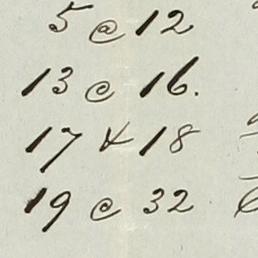 5 @ 12
13 @ 16.
17 & 18
19 @ 32